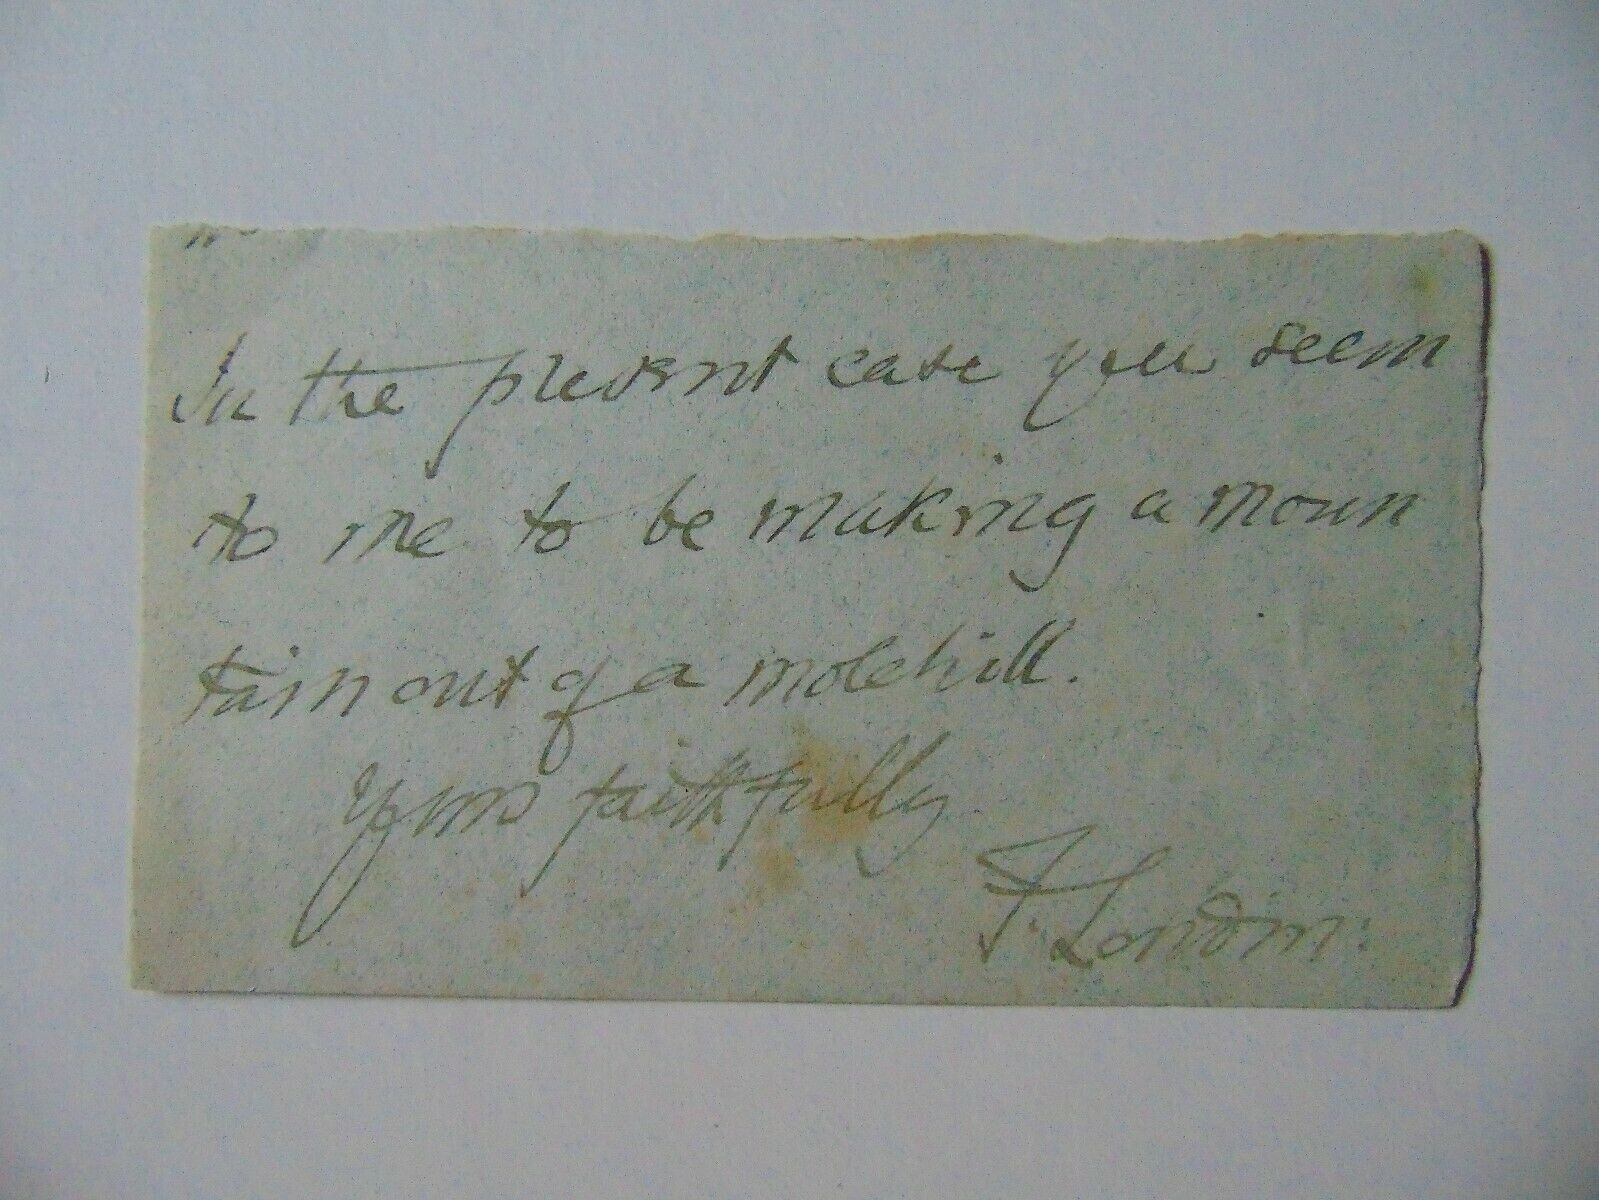 In the present case you seem
to me to be making a moun
tain out of a molehill.
Yours faithfully
F. London: